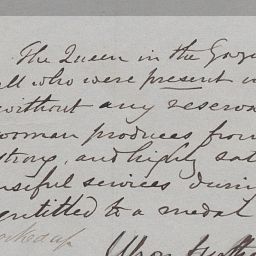 The Queen in the Gove
all who were present
without any reserva
woman produces from
strong, and highly sat
useful services durin
entitled to a medal
worked up